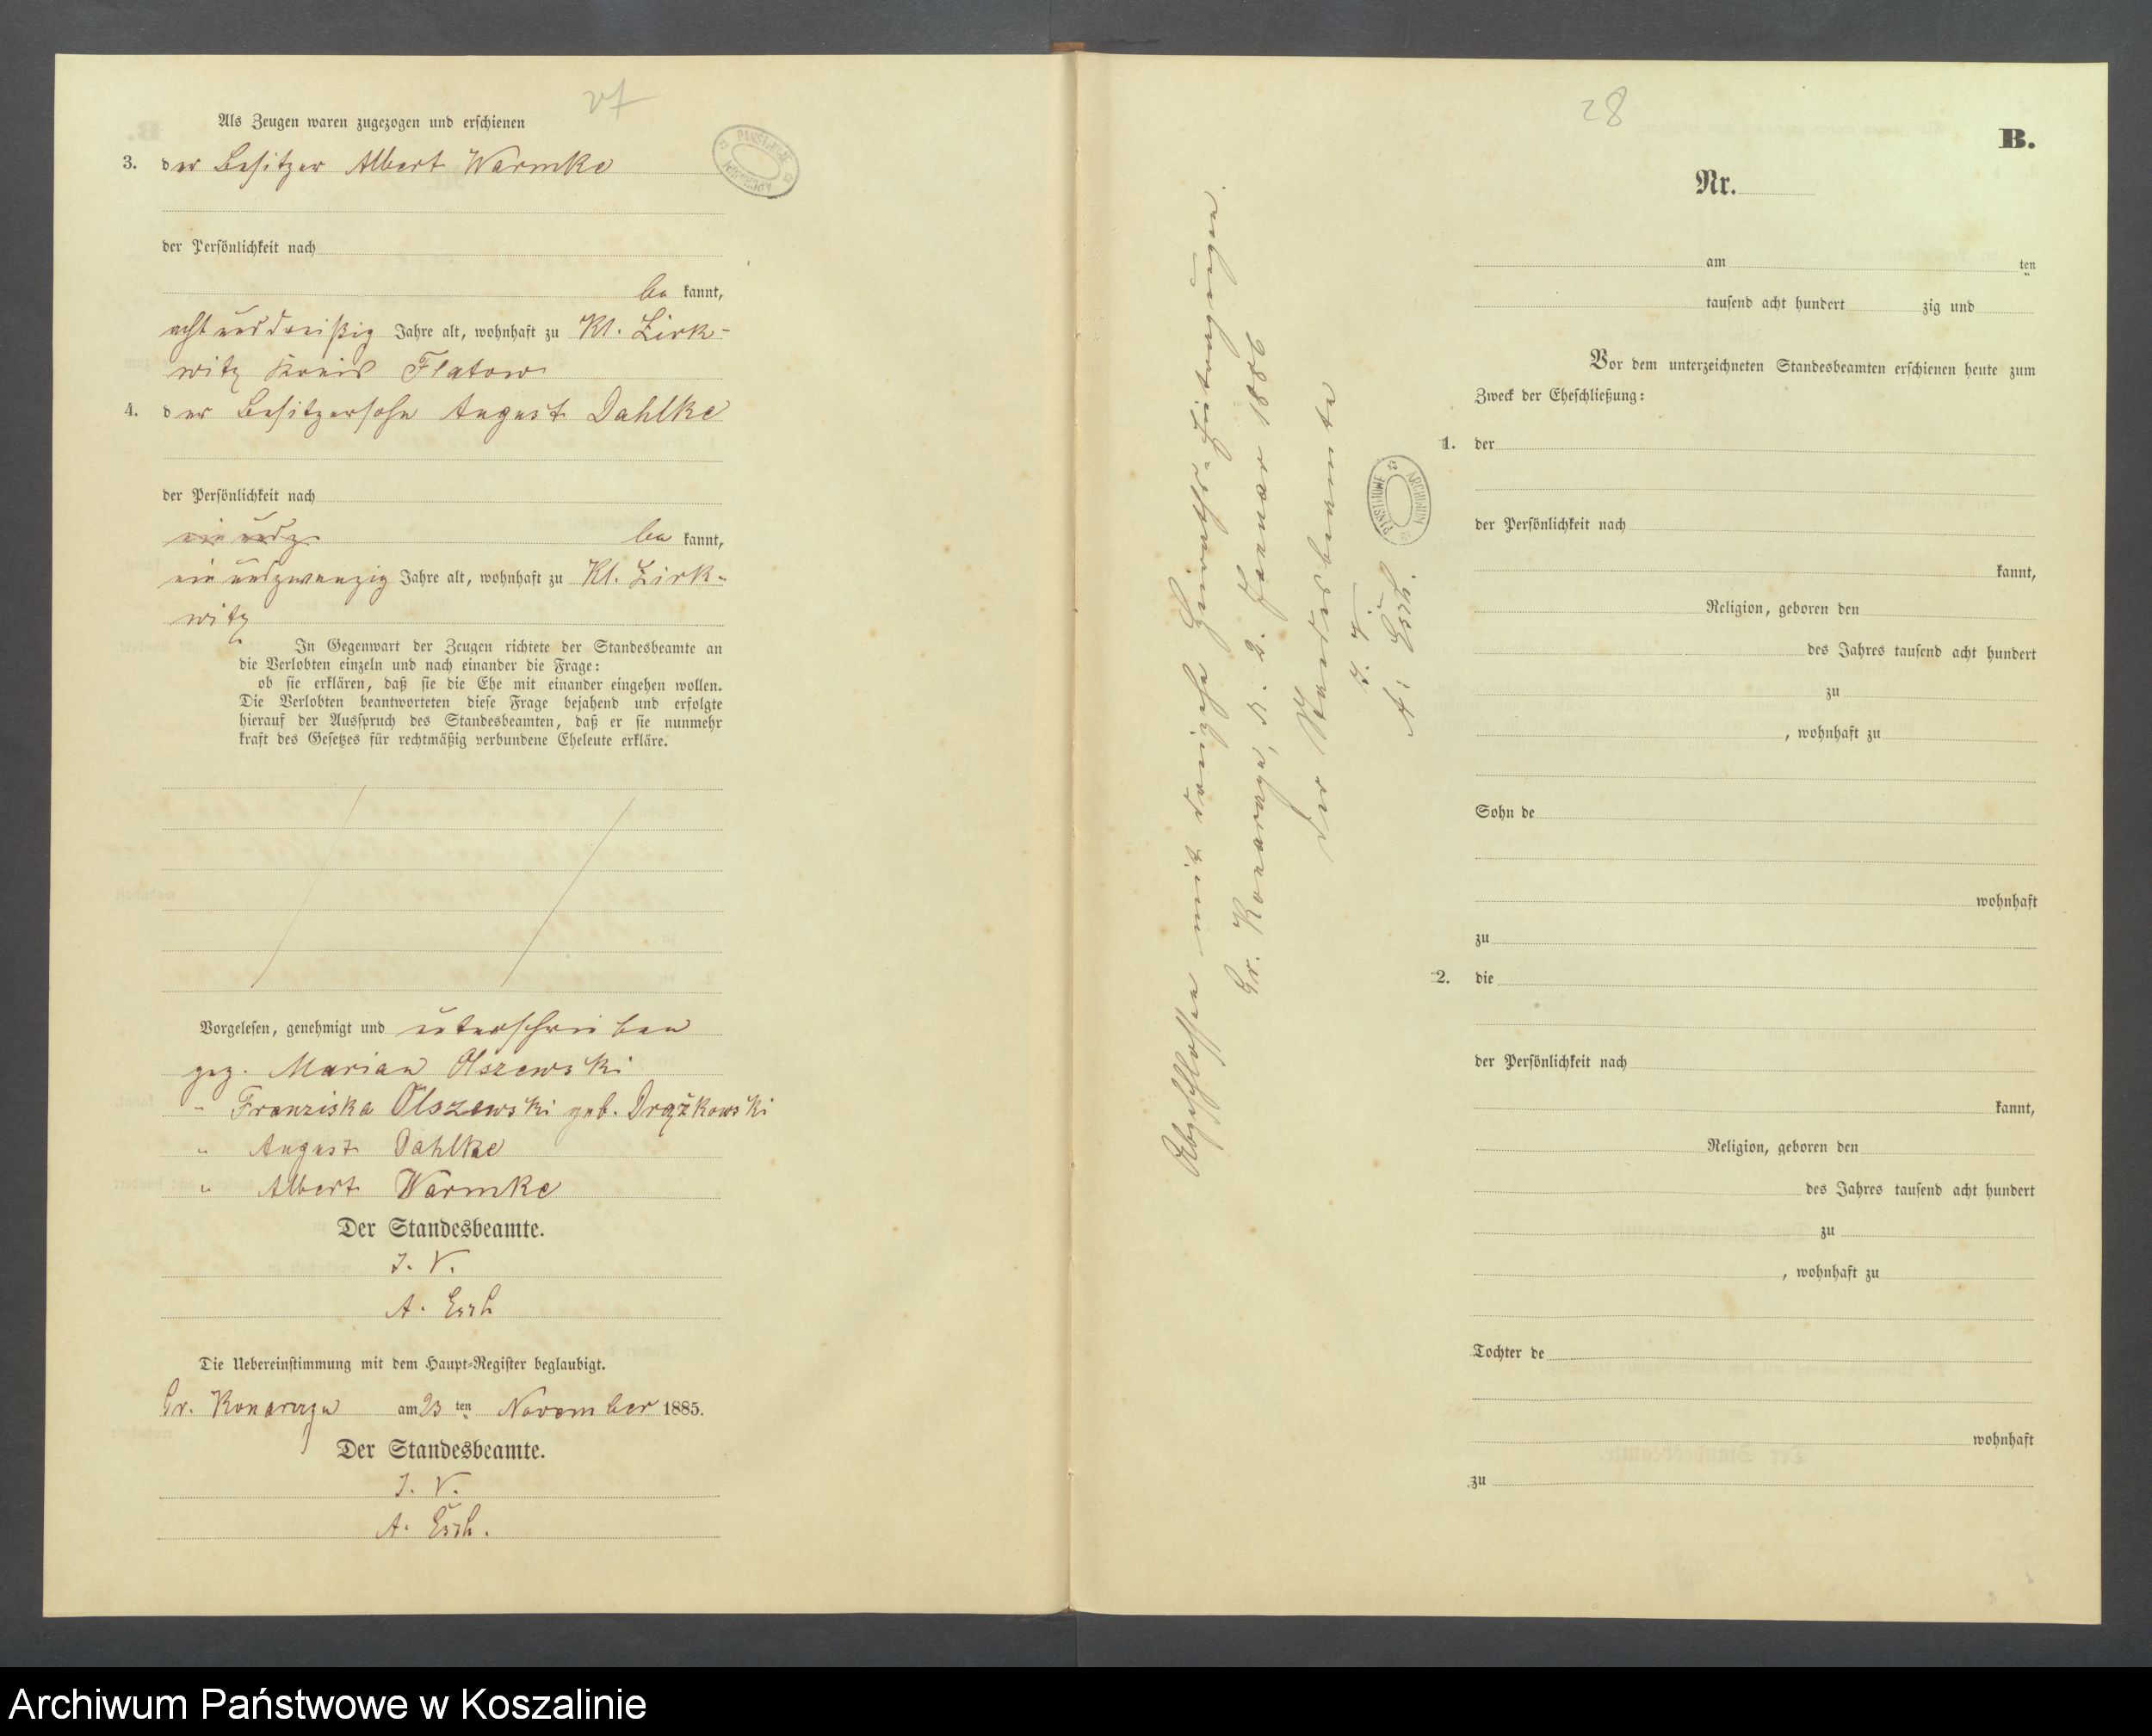 Als Zeugen waren zugezogen und erschienen
3. der Besitzer Albert Warmke
der Persönlichkeit nach
be kannt,
acht und dreißig Jahre alt, wohnhaft zu Kl. Zirk-
witz Kreis Flatow
4. der Besitzersohn August Dahlke
der Persönlichkeit nach
be kannt,
ein und zwanzig Jahre alt, wohnhaft zu Kl. Zirk-
witz
In Gegenwart der Zeugen richtete der Standesbeamte an
die Verlobten einzeln und nach einander die Frage:
ob sie erklären, daß sie die Ehe mit einander eingehen wollen.
Die Verlobten beantworteten diese Frage bejahend und erfolgte
hierauf der Ausspruch des Standesbeamten, daß er sie nunmehr
kraft des Gesetzes für rechtmäßig verbundene Eheleute erkläre.
Vorgelesen, genehmigt und unterschrieben
gez. Marian Olszewski
" Franziska Olszewski geb. Drążkowski
" August Dahlke
" Albert Warmke
Der Standesbeamte.
I. V.
A. Esch
Die Uebereinstimmung mit dem Haupt-Register beglaubigt.
Gr. Konarzyn am 23 ten November 1885.
Der Standesbeamte.
I. V.
A. Esch.
Abgeschlossen mit dreizehn Heiraths-Eintragungen.
Gr. Konarzyn, d. 2. Januar 1886
Der Standesbeamte
I. V.
A. Esch.
ARCHIWUM PAŃSTWOWE
28
B.
Nr.
am ten
tausend acht hundert zig und
Vor dem unterzeichneten Standesbeamten erschienen heute zum
Zweck der Eheschließung:
1. der
der Persönlichkeit nach
kannt,
Religion, geboren den
des Jahres tausend acht hundert
zu
, wohnhaft zu
Sohn de
wohnhaft
zu
2. die
der Persönlichkeit nach
kannt,
Religion, geboren den
des Jahres tausend acht hundert
zu
, wohnhaft zu
Tochter de
wohnhaft
zu
Archiwum Państwowe w Koszalinie